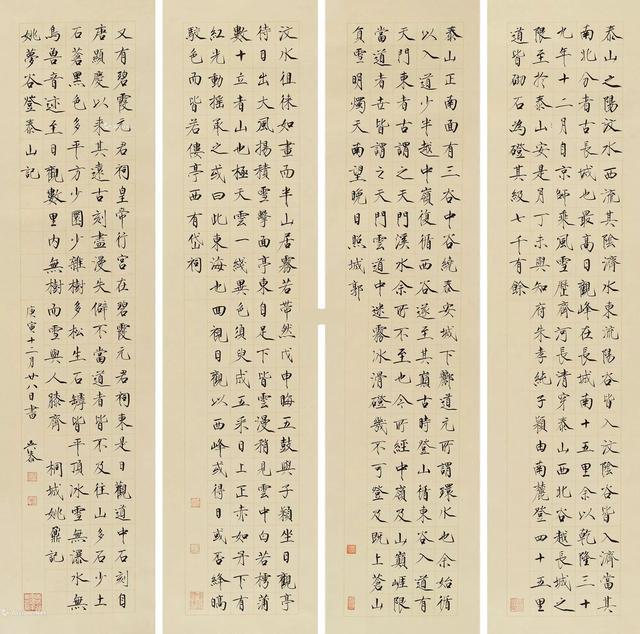 泰山之陽汶水西流其陰濟水東流陽谷皆入汶陰谷皆入濟當其
南北分者古長城也最高日觀峰在長城南十五里余以乾隆三十
九年十二月自京師乘風雪歷齊河長清穿泰山西北谷越長城之
限至於泰山安是月丁未與知府朱孝純子穎由南麓登四十五里
道皆砌石為磴其級七千有餘
泰山正南面有三谷中谷繞泰安城下酈道元所謂環水也余始循
以入道少半越中嶺復循西谷遂至其巔古時登山循東谷入道有
天門東者古謂之天門溪水余所不至也今所經中嶺及山巔崖限
當道者世皆謂之天門雲道中迷霧冰滑磴幾不可登及既上蒼山
負雪明燭天南望晚日照城郭
汶水徂徠如畫而半山居霧若帶然戊申晦五鼓與子穎坐日觀亭
待日出大風揚積雪擊面亭東自足下皆雲漫稍見雲中白若樗蒲
數十立者山也極天雲一綫異色須臾成五采日上正赤如丹下有
紅光動搖承之或曰此東海也回視日觀以西峰或得日或否絳皜
駁色而皆若僂亭西有岱祠
又有碧霞元君祠皇帝行宮在碧霞元君祠東是日觀道中石刻自
唐顯慶以來其遠古刻盡漫失僻不當道者皆不及往山多石少土
石蒼黑色多平方少圜少雜樹多松生石罅皆平頂冰雪無瀑水無
鳥獸音迹至日觀數里內無樹而雪與人膝齊 桐城姚鼐記
姚夢谷登泰山記 庚寅十二月廿八日書